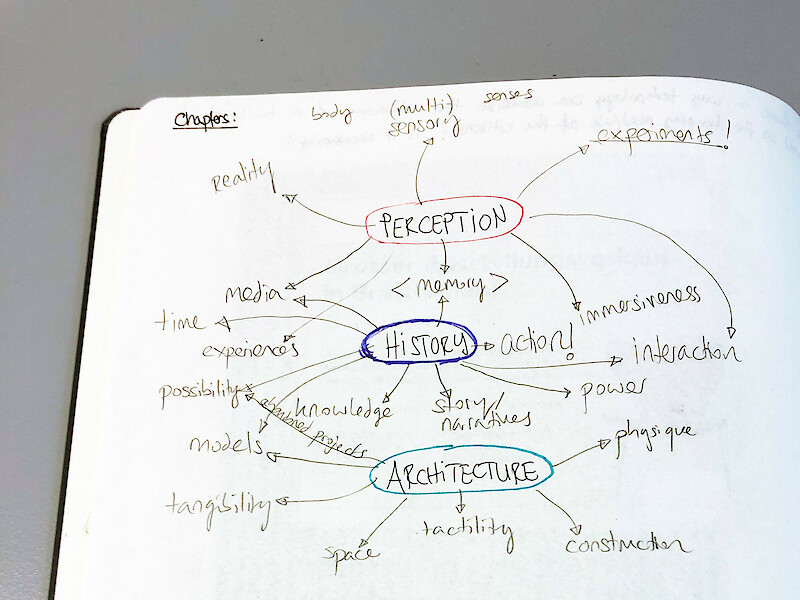 Chapters:
body (multi) senses
sensory
experiments!
reality
PERCEPTION
<memory>
media
immersiveness
time
HISTORY
action!
experiences
interaction
possibility
power
knowledge
story/
naratives
abandoned projects
models
physique
ARCHITECTURE
tangibility
tactility
space
construction